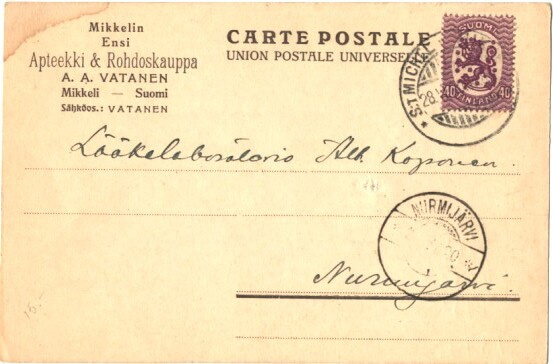 Mikkelin
Ensi
Apteekki & Rohdoskauppa
A. A. VATANEN
Mikkeli — Suomi
Sähköos.: VATANEN
CARTE POSTALE
UNION POSTALE UNIVERSELLE
SUOMI
40 FINLAND 40
* ST MICHEL
28.
Lääkelaboratorio Alb. Koponen.
NURMIJÄRVI
20
Nurmijärvi.
15.-